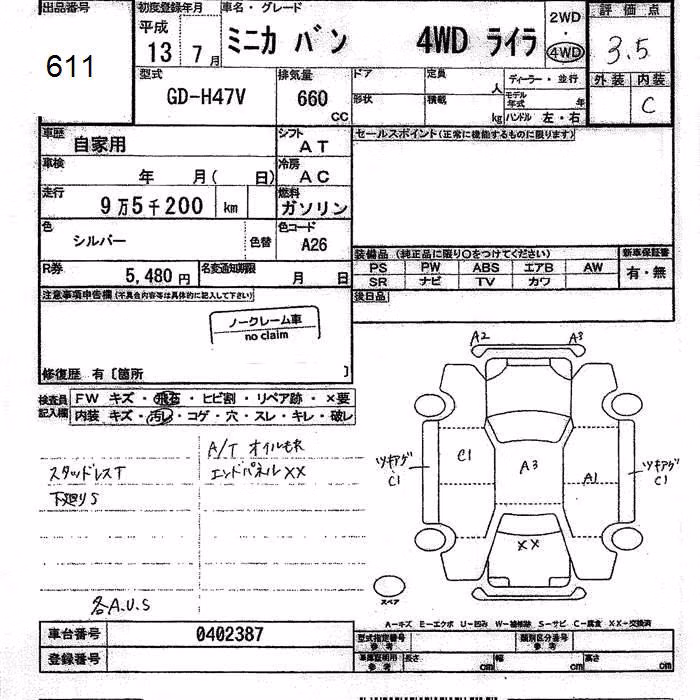 出品番号
611
初度登録年月
平成
13 7月
車名・グレード
ミニカ バン 4WD ライラ
2WD
・
4WD
評価点
3.5
外装 内装
C
型式
GD-H47V
排気量
660
CC
ドア
形状
定員
人
積載
kg
ディーラー・並行
モデル年式 年
ハンドル 左・右
車歴
自家用
シフト
AT
セールスポイント(正常に機能するものに限ります)
車検
年 月( 日)
冷房
AC
走行
9万5千200 km
燃料
ガソリン
色
シルバー
色替
色コード
A26
装備品 (純正品に限り○をつけてください)
新車保証書
PS PW ABS エアB AW
SR ナビ TV カワ
有・無
R券
5,480円
名変通知期限
月 日
後日品
注意事項申告欄(不具合内容等は具体的に記入して下さい)
ノークレーム車
no claim
修復歴 有〔箇所 〕
検査員記入欄
FW キズ・飛石・ヒビ割・リペア跡・×要
内装 キズ・汚レ・コゲ・穴・スレ・キレ・破レ
A/T オイルモレ
スタッドレスT
エンドパネルXX
下廻りS
各A.U.S
A2
A3
ツキアゲ
C1
C1
A3
A1
ツキアゲ
C1
XX
スペア
A-キズ E-エクボ U-凹み W-補修跡 S-サビ C-腐食 XX-交換済
車台番号
0402387
登録番号
型式指定番号
参考
類別区分番号
参考
車庫証明用
参考
長さ cm
幅 cm
高さ cm